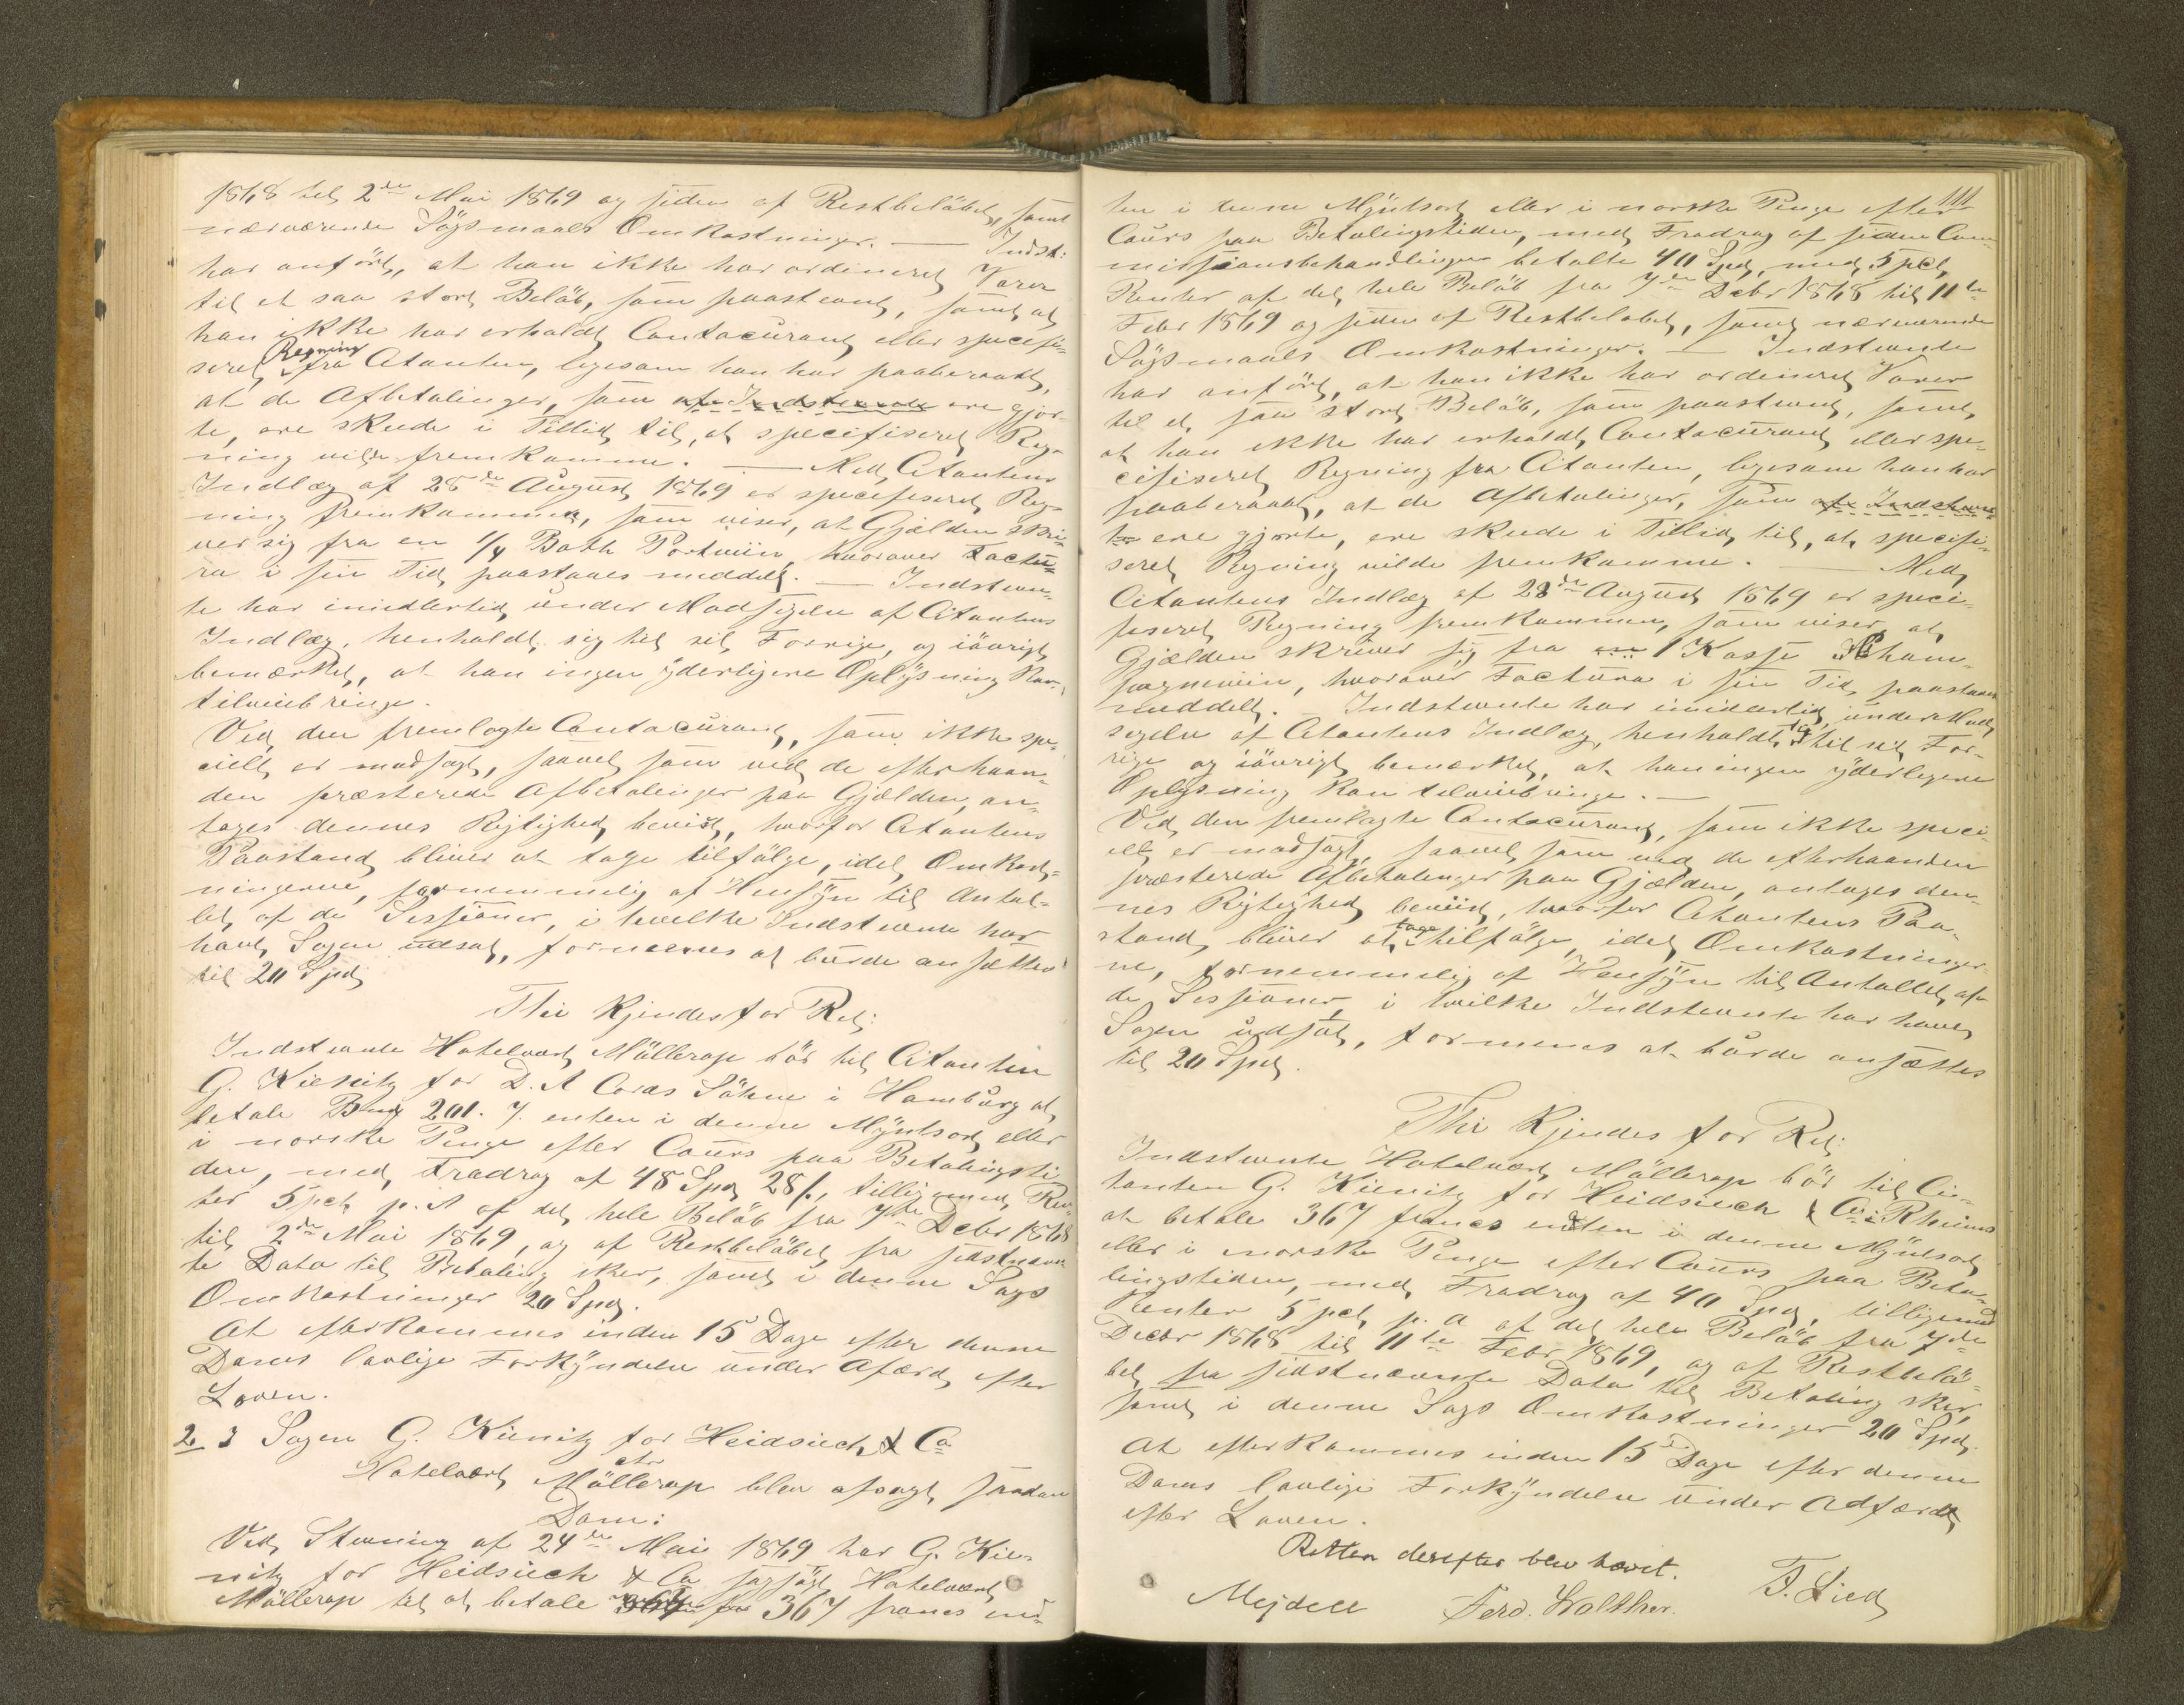 1868 til 2den Mai 1869 og siden af Restbeløbet, samt
nærværende Søgsmaals Omkostninger. — Indst:
har anført, at han ikke har ordineret Varer
til et saa stort Beløb, som paastævnt, samt at
han ikke har erholdt Contocurant eller specifi-
seret Regning fra Citanten, ligesom han har paaberaabt,
at de Afbetalinger, som af Indstevnte ere gjor-
te, ere skede i Tillid til, at specifiseret Reg-
ning vilde fremkomme. — Med Citantens
Indlæg af 28de August 1869 er specifiseret Reg-
ning fremkommen, som viser, at Gjælden skri-
ver sig fra en 1/4 Both Portviin, hvorover Factu-
ra i sin Tid paastaaes meddelt. — Indstevn-
te har imidlertid, under Modsigelse af Citantens
Indlæg, henholdt sig til sit Forrige, og iøvrigt
bemærket, at han ingen yderligere Oplysning kan
tilveiebringe.
Ved den fremlagte Contocurant, som ikke spe-
cielt er modsagt, saavel som ved de efterhaan-
den præsterede Afbetalinger paa Gjælden, an-
tages dennes Rigtighed beviist, hvorfor Citantens
Paastand bliver at tage tilfølge, idet Omkost-
ningerne, fornemmelig af Hensyn til Antal-
let af de Sessioner, i hvilke Indstevnte har
havt Sagen udsat, formenes at burde ansættes
til 20 Spd.
Thi kjendes for Ret:
Indstevnte Hotelvært Møllerop bør til Citanten
G. Kienitz for D. A Cords Söhne i Hamburg at
betale Bmk 201. 7. enten i denne Myntsort eller
i norske Penge efter Cours paa Betalingsti-
den, med Fradrag af 48 Spd 28 s, tilligemed Ren-
ter 5 pct p. A af det hele Beløb fra 7de Decbr 1868
til 2den Mai 1869, og af Restbeløbet fra sidstnævn-
te Dato til Betaling sker, samt i denne Sags
Omkostninger 20 Spd.
At efterkommes inden 15 Dage efter denne
Doms lovlige Forkyndelse under Adfærd efter
Loven.
2 3 Sagen G. Kienitz for Heidsieck & Co
ctr
Hotelvært Møllerop blev afsagt saadan
Dom:
Ved Stevning af 24de Mai 1869 har G. Kie-
nitz for Heidsieck & Co sagsøgt Hotelvært
Møllerop til at betale 367 francs en-
111
ten i denne Myntsort eller i norske Penge efter
Cours paa Betalingstiden, med Fradrag af siden Com-
missionsbehandlingen betalte 40 Spd, med 5 pct
Renter af det hele Beløb fra 7de Decbr 1868 til 11te
Febr 1869 og siden af Restbeløbet, samt nærværende
Søgsmaals Omkostninger. — Indstevnte
har anført, at han ikke har ordineret Varer
til et saa stort Beløb, som paastævnt, samt
at han ikke har erholdt Contocurant eller spe-
cifiseret Regning fra Citanten, ligesom han har
paaberaabt, at de Afbetalinger, som af Indstevn-
te ere gjorte, ere skede i Tillid til, at specifi-
seret Regning vilde fremkomme. — Med
Citantens Indlæg af 28de August 1869 er speci-
fiseret Regning fremkommen, som viser, at
Gjælden skriver sig fra en 1 Kasse Cham-
pagneviin, hvorover Factura i sin Tid paastaaes
meddelt. — Indstevnte har imidlertid, under Mod-
sigelse af Citantens Indlæg, henholdt sig til sit For-
rige og iøvrigt bemærket, at han ingen yderligere
Oplysning kan tilveiebringe. —
Ved den fremlagte Contocurant, som ikke speci-
elt er modsagt, saavel som ved de efterhaanden
præsterede Afbetalinger paa Gjælden, antages den-
nes Rigtighed beviist, hvorfor Citantens Paa-
stand bliver at tage tilfølge, idet Omkostninger-
ne, fornemmelig af Hensyn til Antallet af
de Sessioner, i hvilke Indstevnte har havt
Sagen udsat, formenes at burde ansættes
til 20 Spd.
Thi kjendes for Ret:
Indstevnte Hotelvært Møllerop bør til Ci-
tanten G. Kienitz for Heidsieck & Co i Rheims
at betale 367 francs enten i denne Myntsort
eller i norske Penge efter Cours paa Beta-
lingstiden, med Fradrag af 40 Spd, tilligemed
Renter 5 pct p. a af det hele Beløb fra 7de
Decbr 1868 til 11te Febr 1869, og af Restbelø-
bet fra sidstnævnte Dato til Betaling sker,
samt i denne Sags Omkostninger 20 Spd.
At efterkommes inden 15 Dage efter denne
Doms lovlige Forkyndelse under Adfærd
efter Loven.
Retten derefter blev hævet.
Mejdell Ferd. Walther. T. Lied